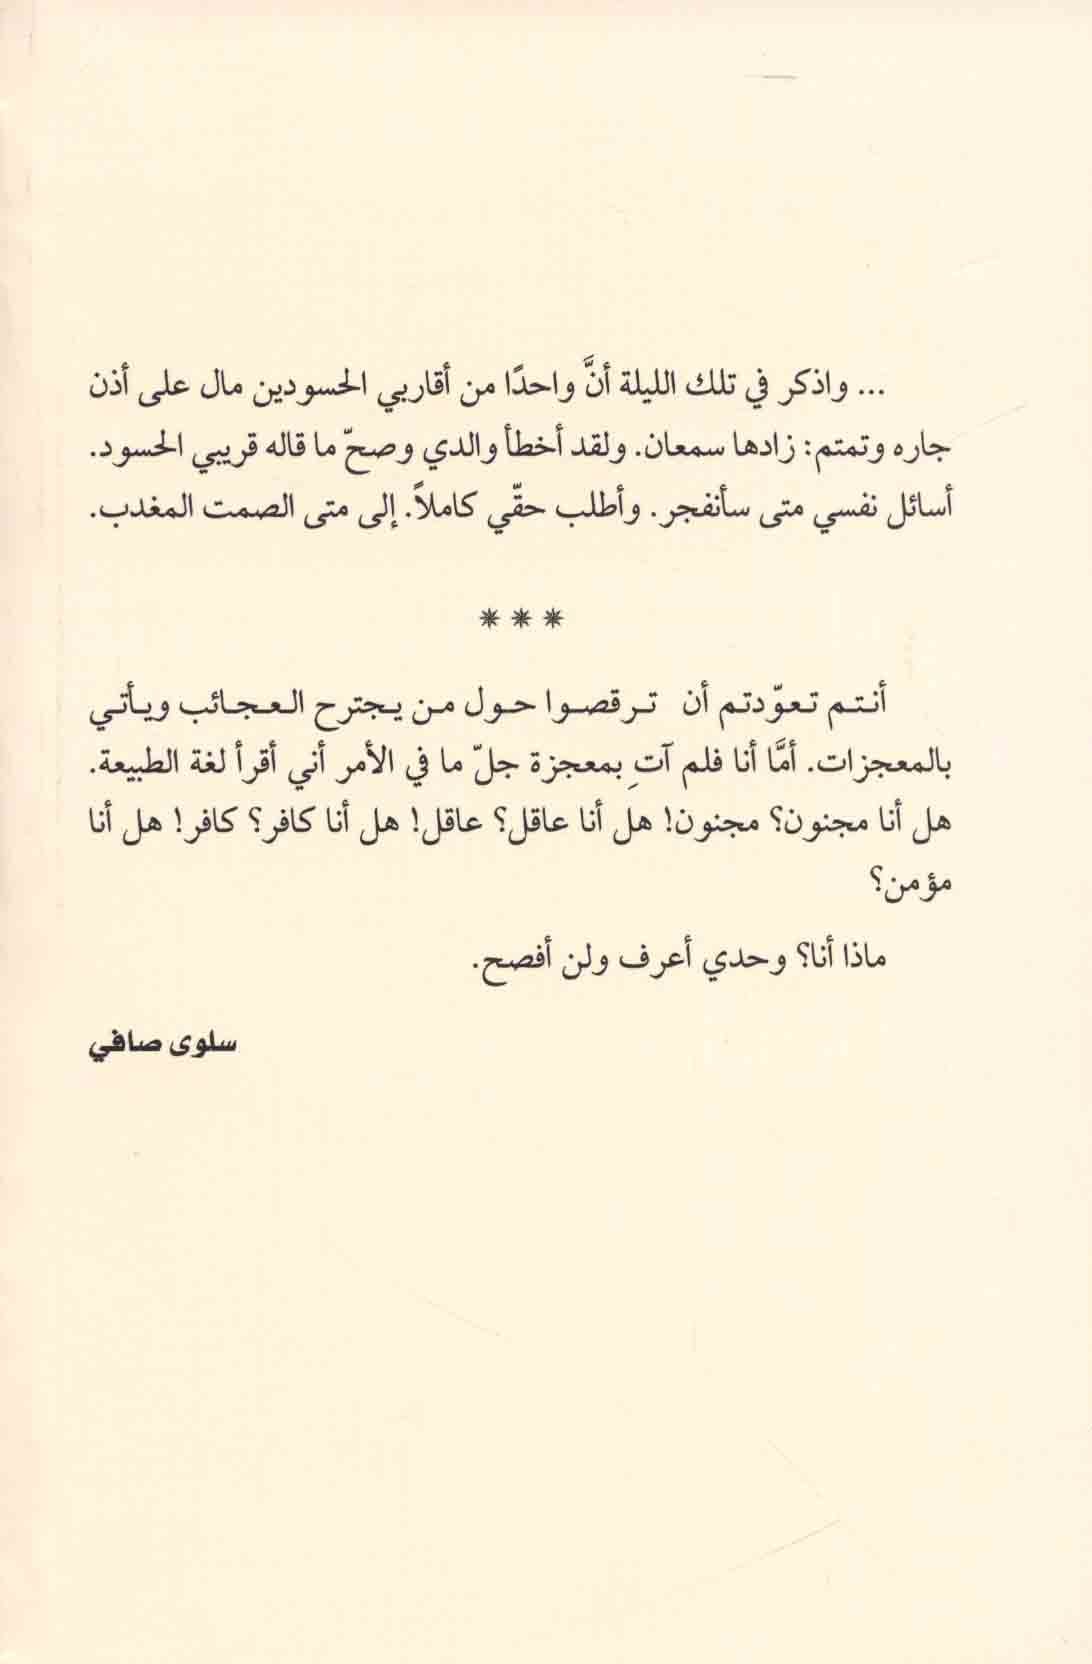 ... واذكر في تلك الليلة أنَّ واحدًا من أقاربي الحسودين مال على أذن
جاره وتمتم: زادها سمعان. ولقد أخطأ والدي وصحّ ما قاله قريبي الحسود.
أسائل نفسي متى سأنفجر. وأطلب حقّي كاملاً. إلى متى الصمت المغدب.
* * *
أنتم تعوّدتم أن ترقصوا حول من يجترح العجائب ويأتي
بالمعجزات. أمَّا أنا فلم آتِ بمعجزة جلّ ما في الأمر أني أقرأ لغة الطبيعة.
هل أنا مجنون؟ مجنون! هل أنا عاقل؟ عاقل! هل أنا كافر؟ كافر! هل أنا
مؤمن؟
ماذا أنا؟ وحدي أعرف ولن أفصح.
سلوى صافي